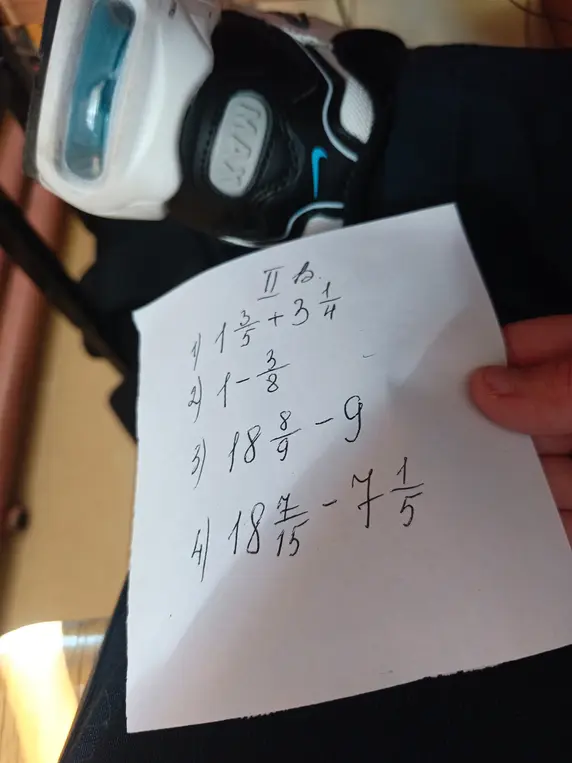 MAX
II в.
1) 1 3/5 + 3 1/4
2) 1 - 3/8
3) 18 8/9 - 9
4) 18 7/15 - 7 1/5